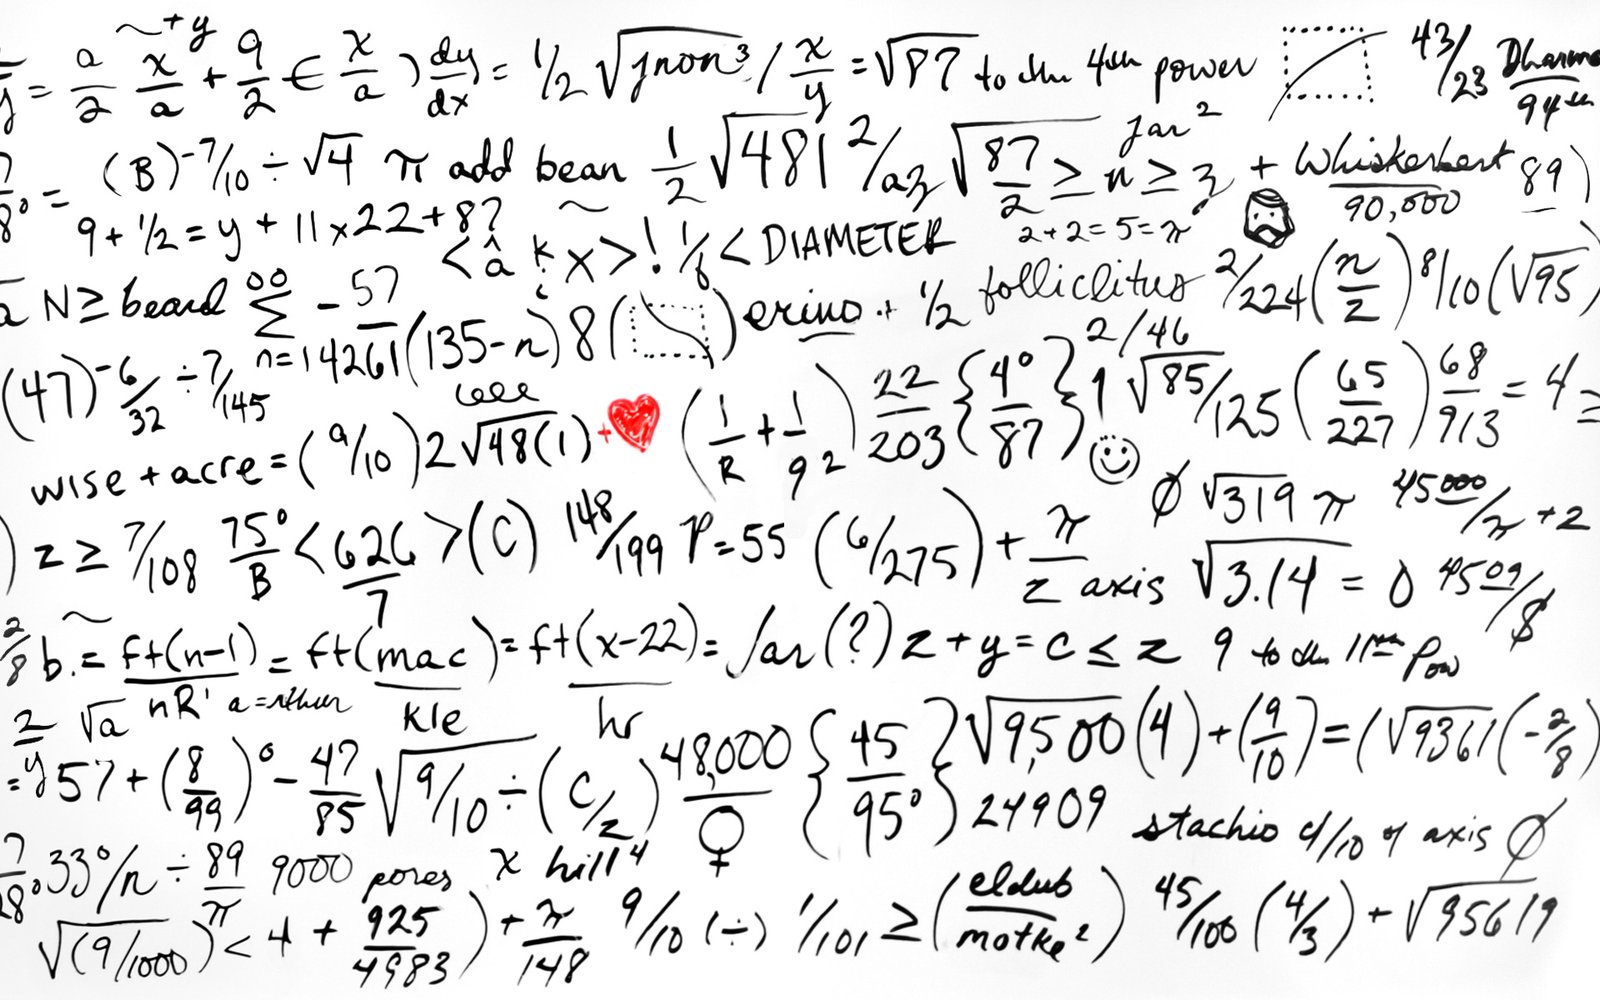 y = a/2 x/a + y + 9/2 ∈ x/a ) dy/dx = 1/2 √jnon³ / x/y = √87 to the 4th power 43/23 Dharma/94th
7/8° = (B)⁻⁷/10 ÷ √4 π add bean 1/2 √481 2/az √87/2 ≥ n ≥ z jar² + Whiskerbert/90,000 89)
9 + 1/2 = y + 11 x 22 + 8? < â k x > ! 1/6 < DIAMETER 2+2=5=π
a N ≥ beard ∞ Σ n=1 -57/4261 (135-n) 8 ( ) erino + 1/2 folliclitus 2/224 (n/z) 8/10 (√95)
(47)⁻⁶/32 ÷ 7/145
wise + acre = (9/10) 2 √48(1) + ❤ (1/R + 1/9²) 22/203 {4°/87} 2/46 1 √85/125 (65/227) 68/913 = 4 =
) z ≥ 7/108 75°/B < 626/7 > (C) 148/199 P = 55 (6/275) + π/z axis Ø √319 π 45000/π + 2
√3.14 = 0 4509/$
2/8 b. = ft(n-1)/nR' = ft(mac)/kle = ft(x-22)/hr = ∫ar(?) z + y = c ≤ z 9 to the 11th Pow
2/y √a a = nthun
= y 57 + (8/99)° - 47/85 √9/10 ÷ (C/z) 48,000/♀ {45/95°} √9,500 (4) + (9/10) = (√9361 (-2/8)
24909 stachio 4/10 of axis Ø
7/28 .33°/n ÷ 89/π 9000 pores x hill⁴
√(9/1000) < 4 + 925/4983) + π/148 9/10 (÷) 1/101 ≥ (eldub/motke²) 45/100 (4/3) + √95619